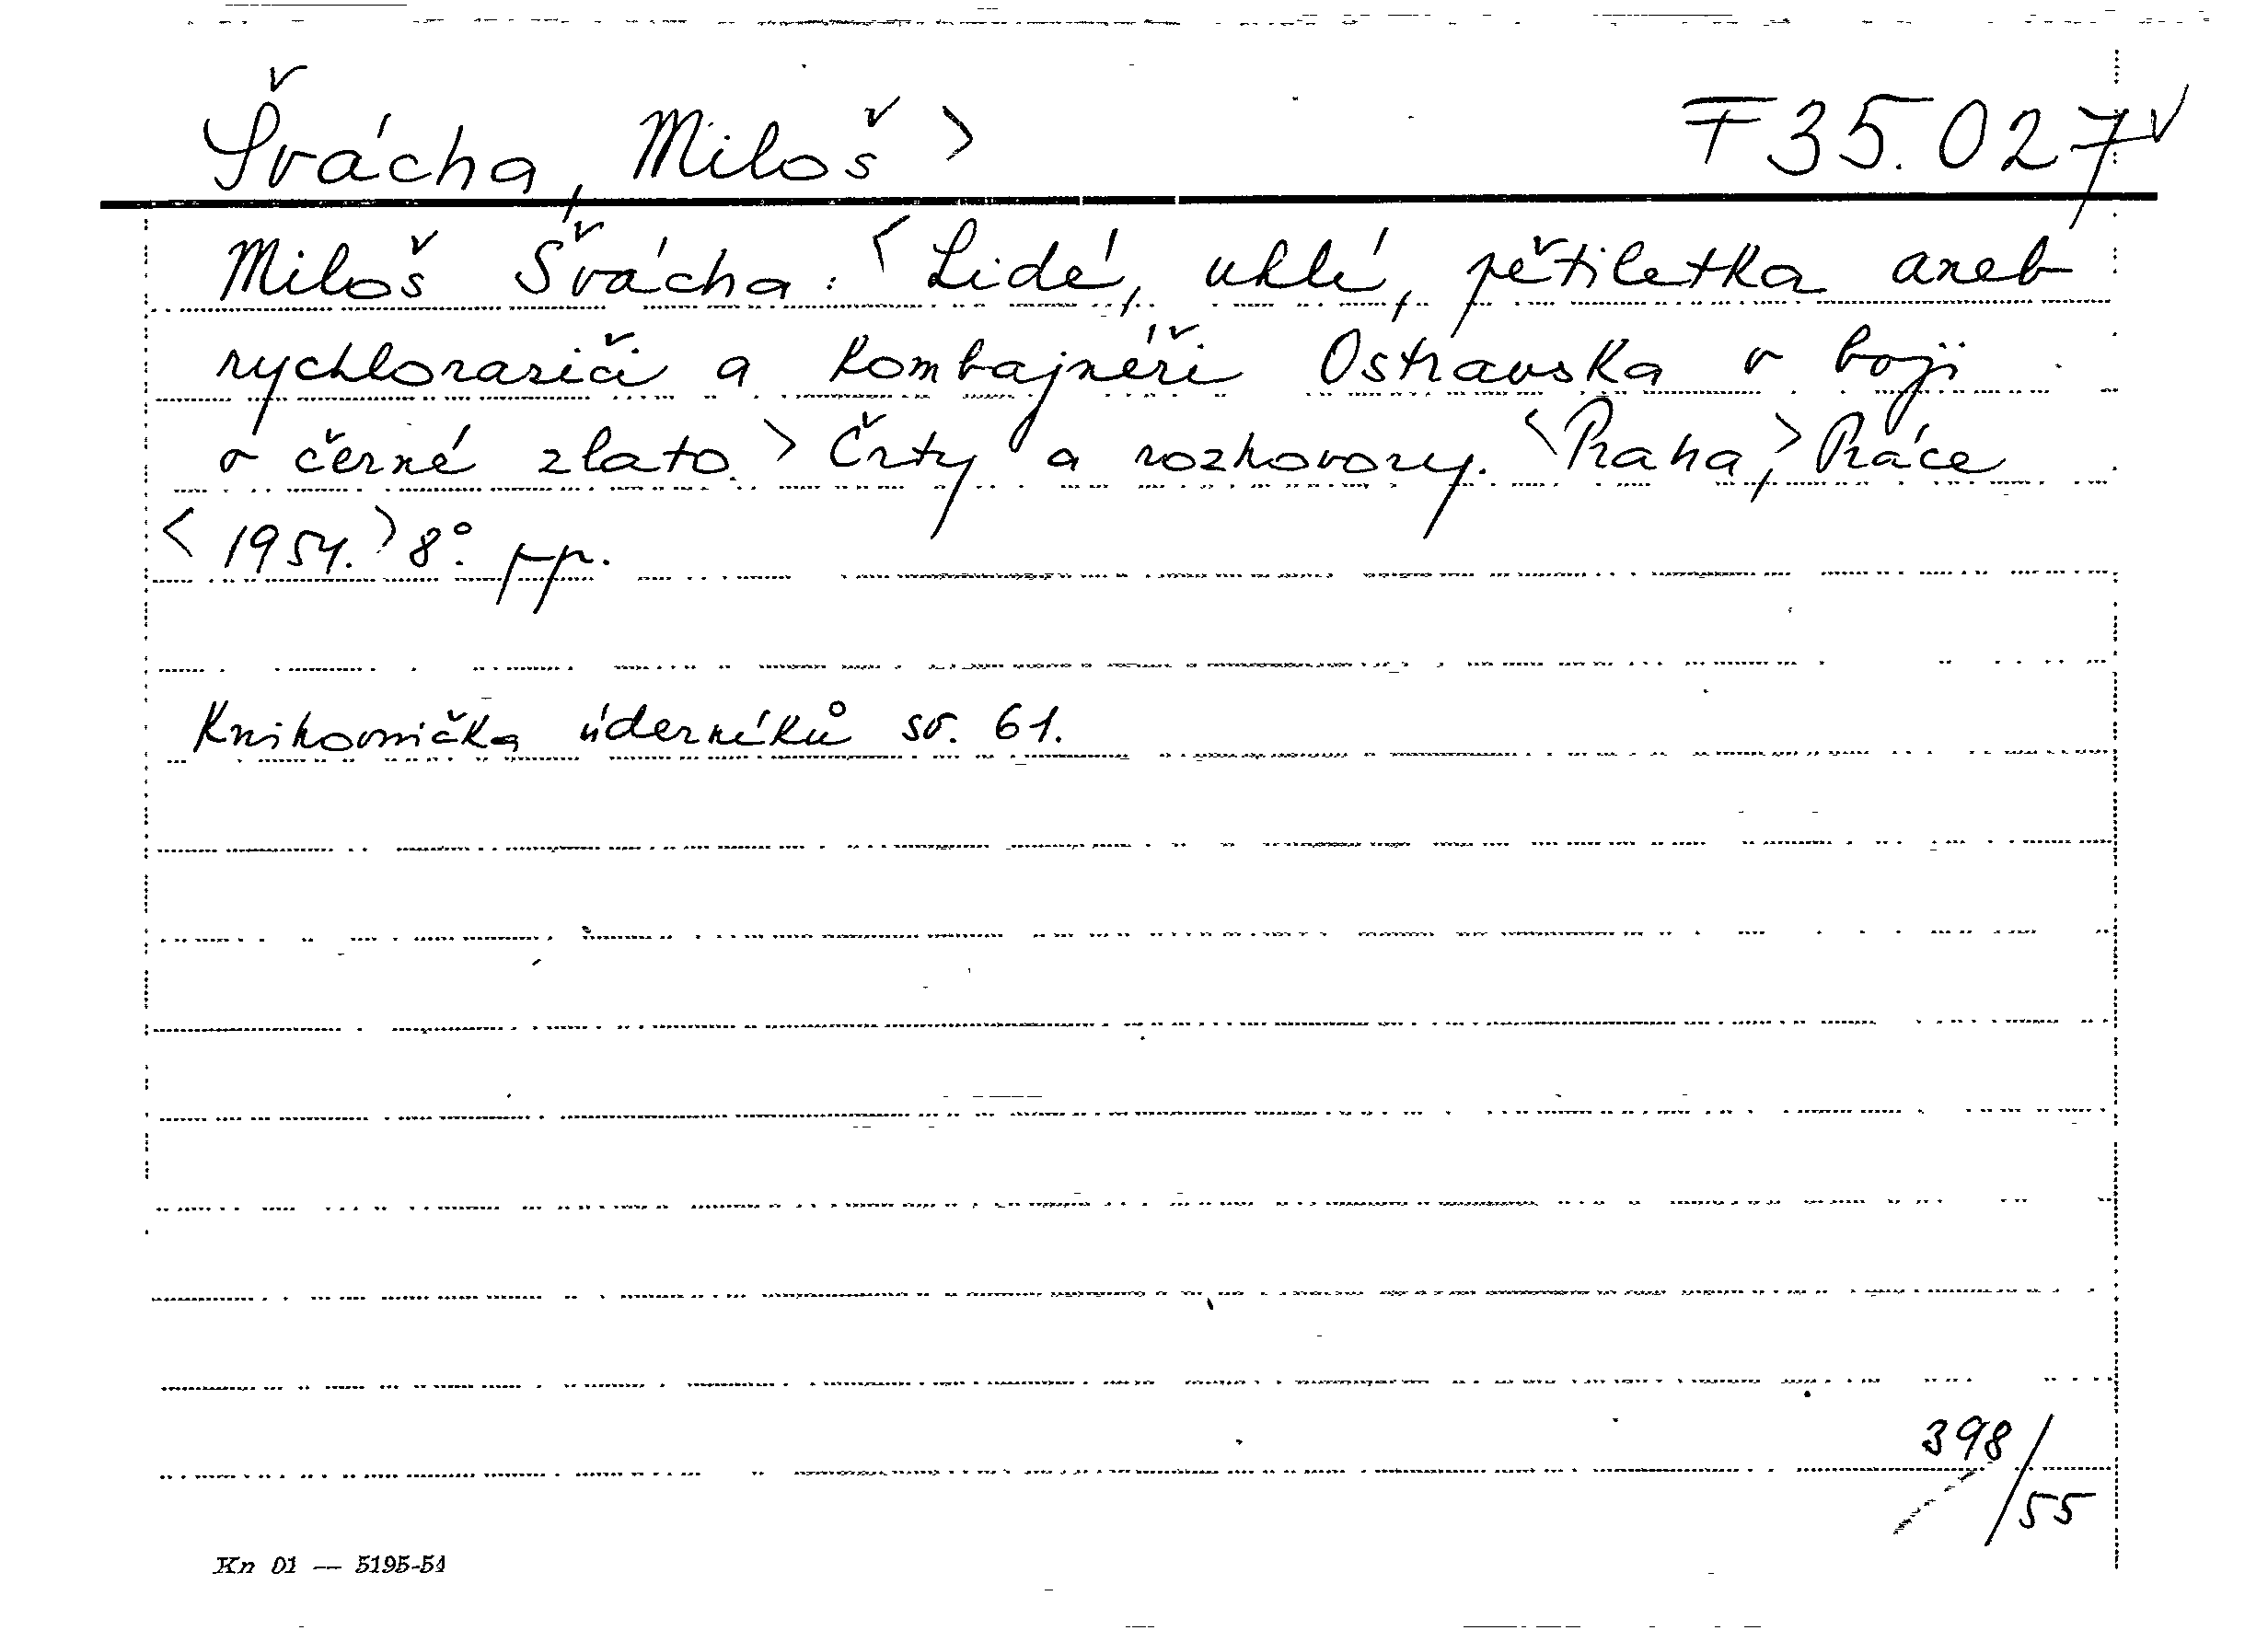 Švácha, Miloš > F 35.027 v
Miloš Švácha: < Lidé, uhlí, pětiletka aneb
rychlorasiči a kombajnéři Ostravska v boji
o černé zlato. > Črty a rozhovory. < Praha, > Práce
< 1954. > 8°. pp.
Knihovnička úderníků sv. 61.
398/55
Kn 01 — 5195-54